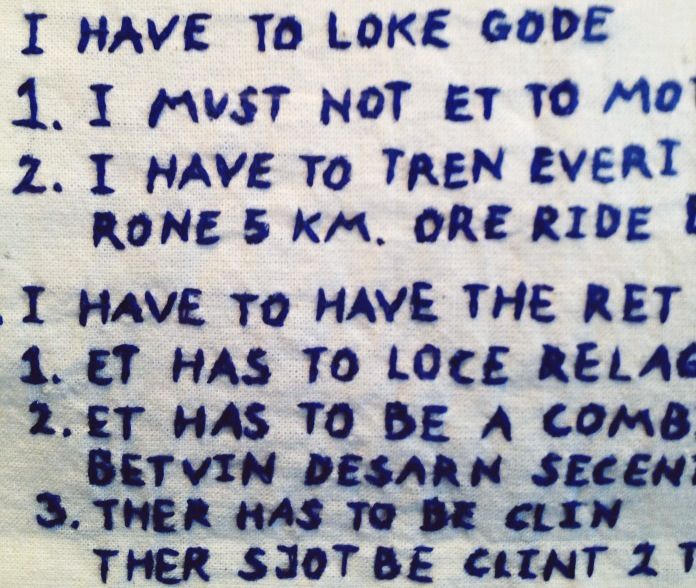 I HAVE TO LOKE GODE
1. I MUST NOT ET TO MOT
2. I HAVE TO TREN EVERI
RONE 5 KM. ORE RIDE
. I HAVE TO HAVE THE RET
1. ET HAS TO LOCE RELAG
2. ET HAS TO BE A COMB
BETVIN DESARN SECEN
3. THER HAS TO BE CLIN
THER SJOT BE CLINT 2 T